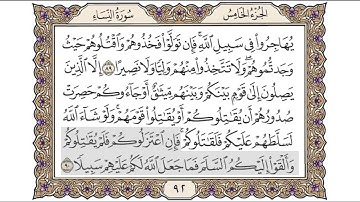 الجزء الخامس
سورة النساء
يُهَاجِرُوا۟ فِى سَبِيلِ ٱللَّهِ فَإِن تَوَلَّوْا۟ فَخُذُوهُمْ وَٱقْتُلُوهُمْ حَيْثُ
وَجَدتُّمُوهُمْ وَلَا تَتَّخِذُوا۟ مِنْهُمْ وَلِيًّا وَلَا نَصِيرًا ٨٩ إِلَّا ٱلَّذِينَ
يَصِلُونَ إِلَىٰ قَوْمٍۭ بَيْنَكُمْ وَبَيْنَهُم مِّيثَٰقٌ أَوْ جَآءُوكُمْ حَصِرَتْ
صُدُورُهُمْ أَن يُقَٰتِلُوكُمْ أَوْ يُقَٰتِلُوا۟ قَوْمَهُمْ وَلَوْ شَآءَ ٱللَّهُ
لَسَلَّطَهُمْ عَلَيْكُمْ فَلَقَٰتَلُوكُمْ فَإِنِ ٱعْتَزَلُوكُمْ فَلَمْ يُقَٰتِلُوكُمْ
وَأَلْقَوْا۟ إِلَيْكُمُ ٱلسَّلَمَ فَمَا جَعَلَ ٱللَّهُ لَكُمْ عَلَيْهِمْ سَبِيلًا ٩٠
٩٢